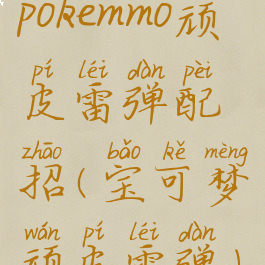 pokemmo顽
pí léi dàn pèi
皮雷弹配
zhāo bǎo kě mèng
招(宝可梦
wán pí léi dàn
顽皮雷弹)